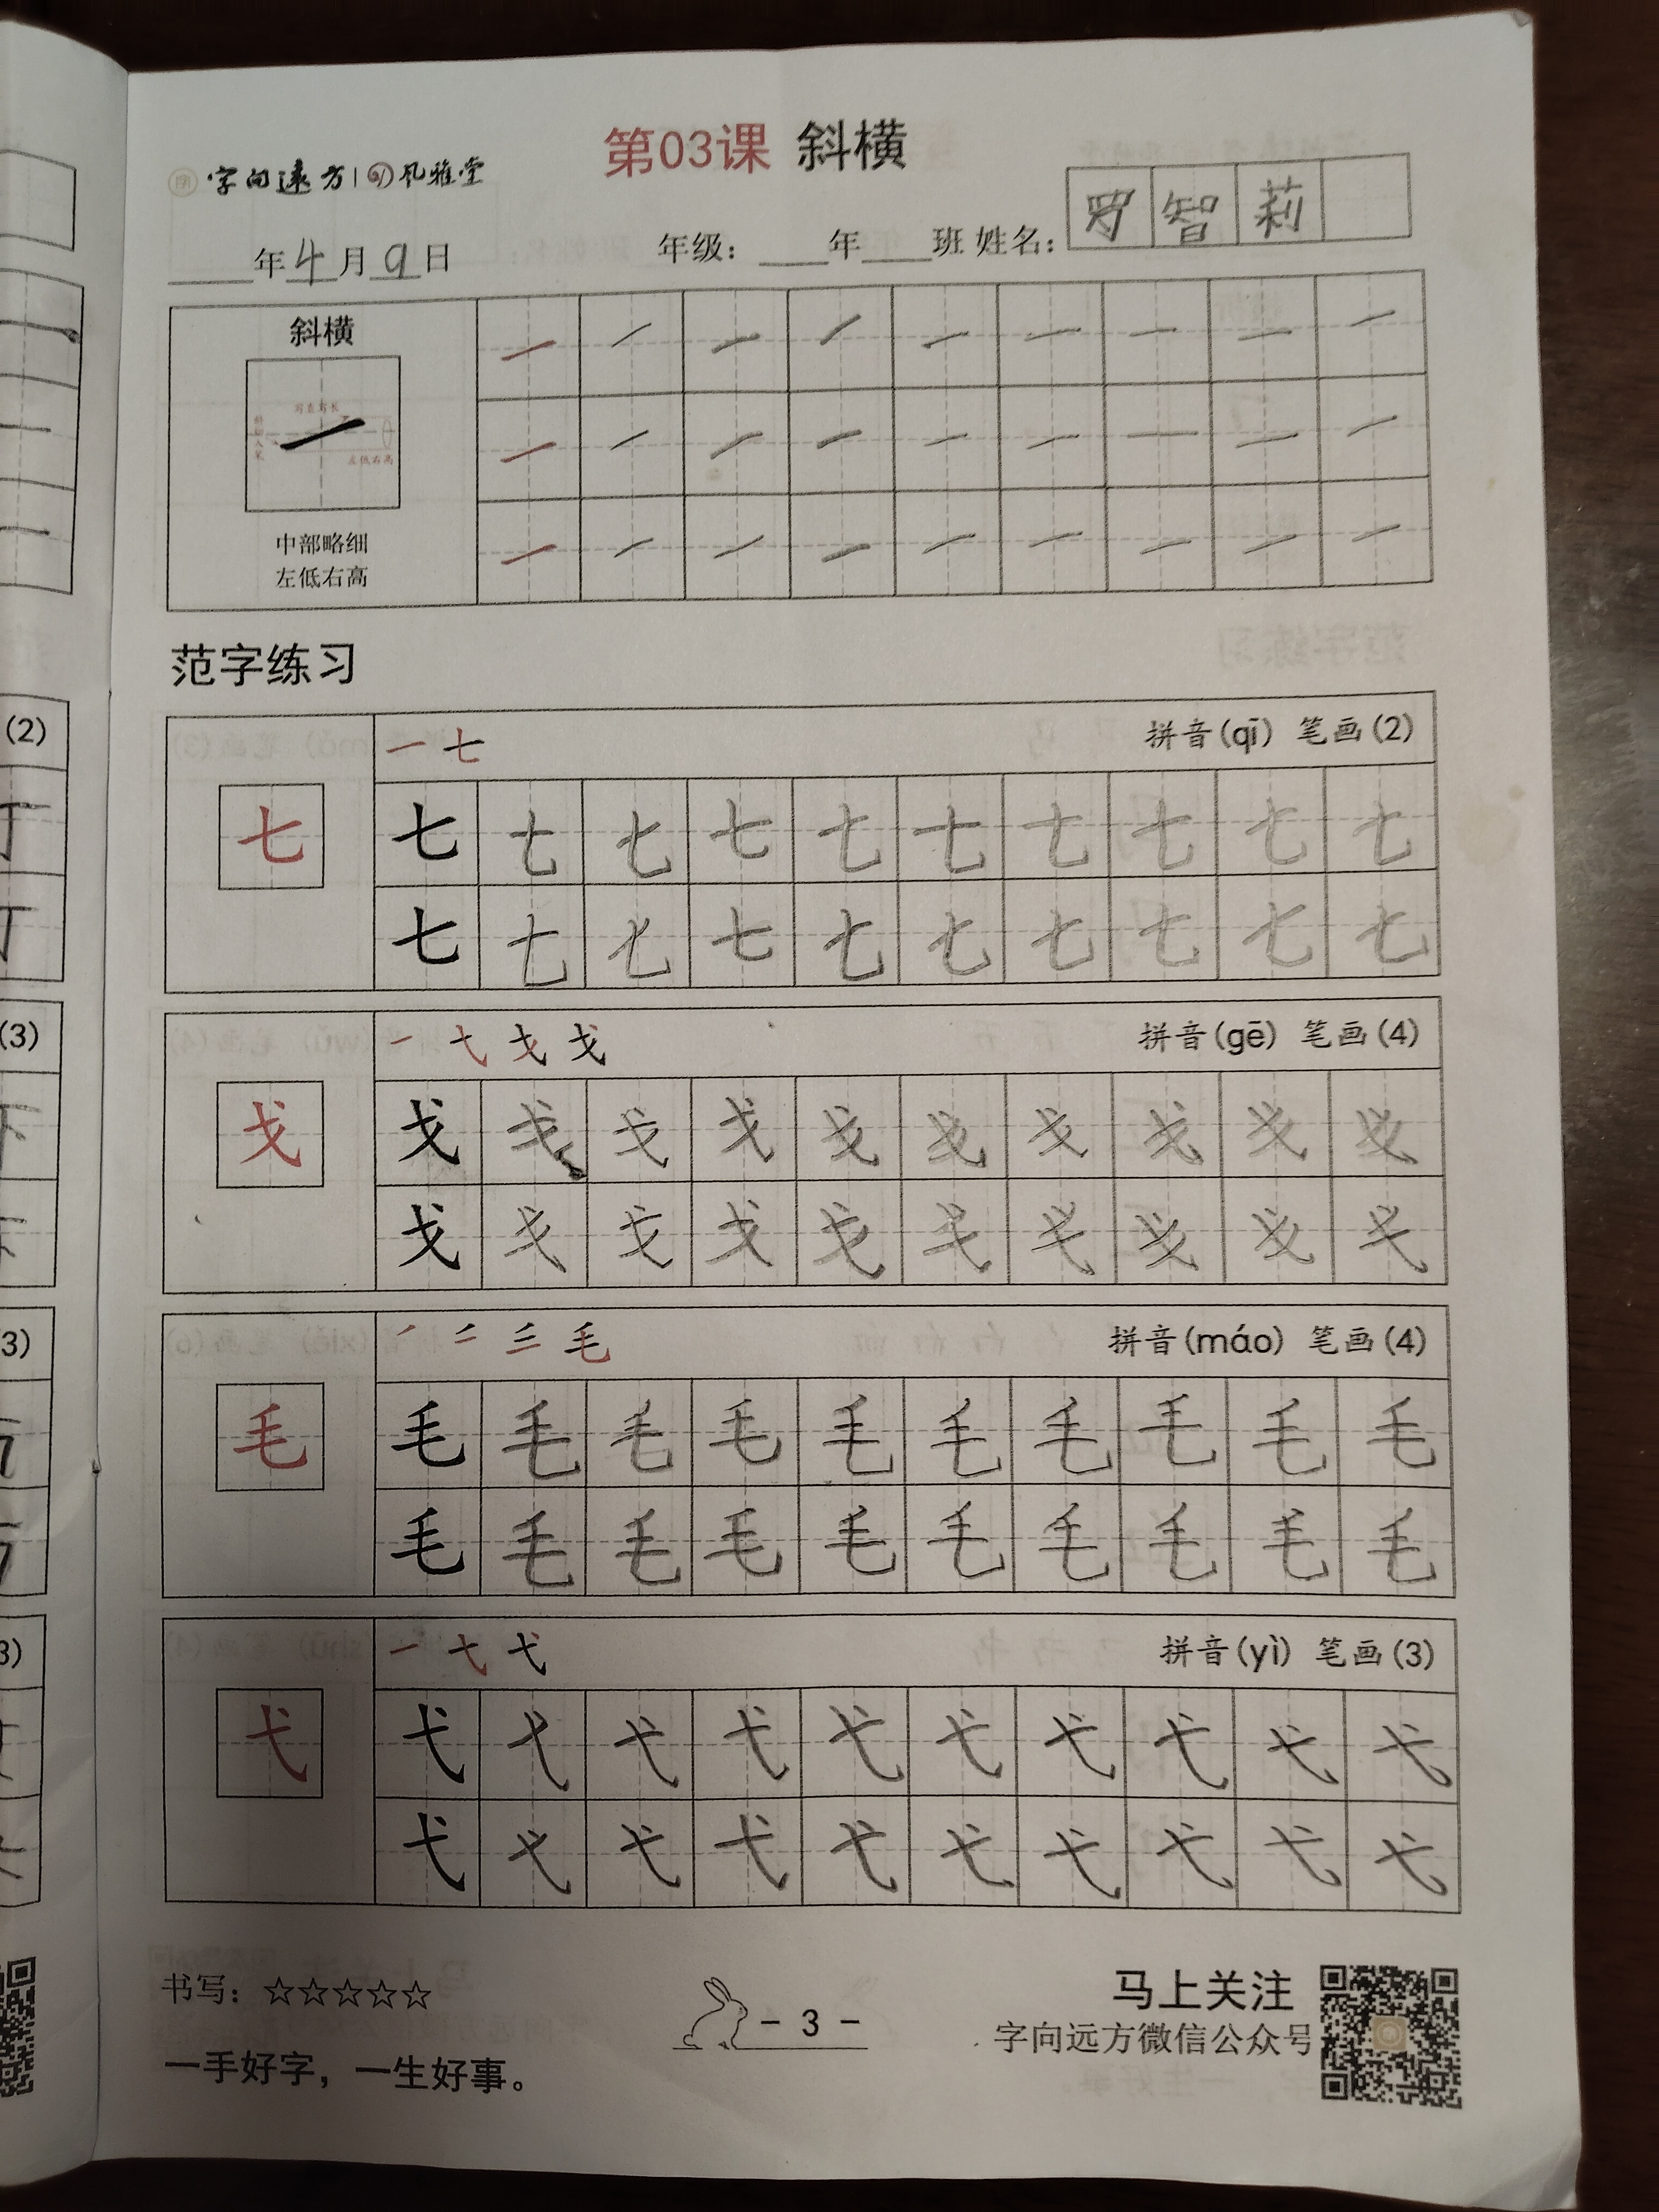 第03课 斜横
字向远方 | 风雅堂
罗智莉
年4月9日 年级：___年___班 姓名：
斜横
写直写长
左低右高
中部略细
左低右高
范字练习
一 七 拼音(qī) 笔画(2)
七 七 七 七 七 七 七 七 七 七 七
七 七 七 七 七 七 七 七 七 七
一 弋 戈 戈 拼音(gē) 笔画(4)
戈 戈 戈 戈 戈 戈 戈 戈 戈 戈 戈
戈 戈 戈 戈 戈 戈 戈 戈 戈 戈
毛 拼音(máo) 笔画(4)
毛 毛 毛 毛 毛 毛 毛 毛 毛 毛 毛
毛 毛 毛 毛 毛 毛 毛 毛 毛 毛
一 弋 弋 拼音(yì) 笔画(3)
弋 弋 弋 弋 弋 弋 弋 弋 弋 弋 弋
弋 弋 弋 弋 弋 弋 弋 弋 弋 弋
书写：☆☆☆☆☆
- 3 -
马上关注
字向远方微信公众号
一手好字，一生好事。
(2)
(3)
3)
3)